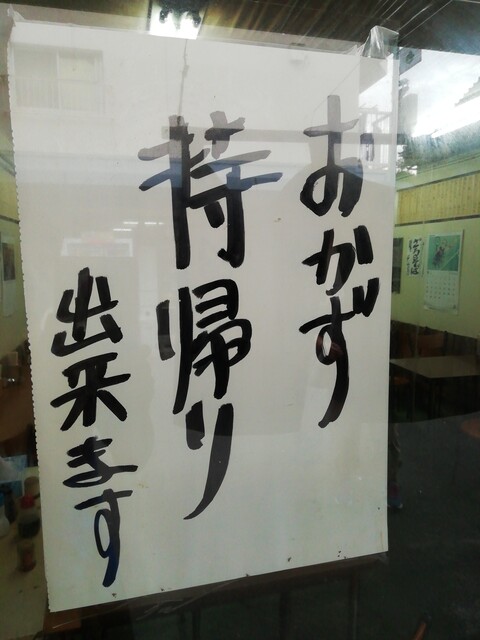 おかず
持帰り
出来ます